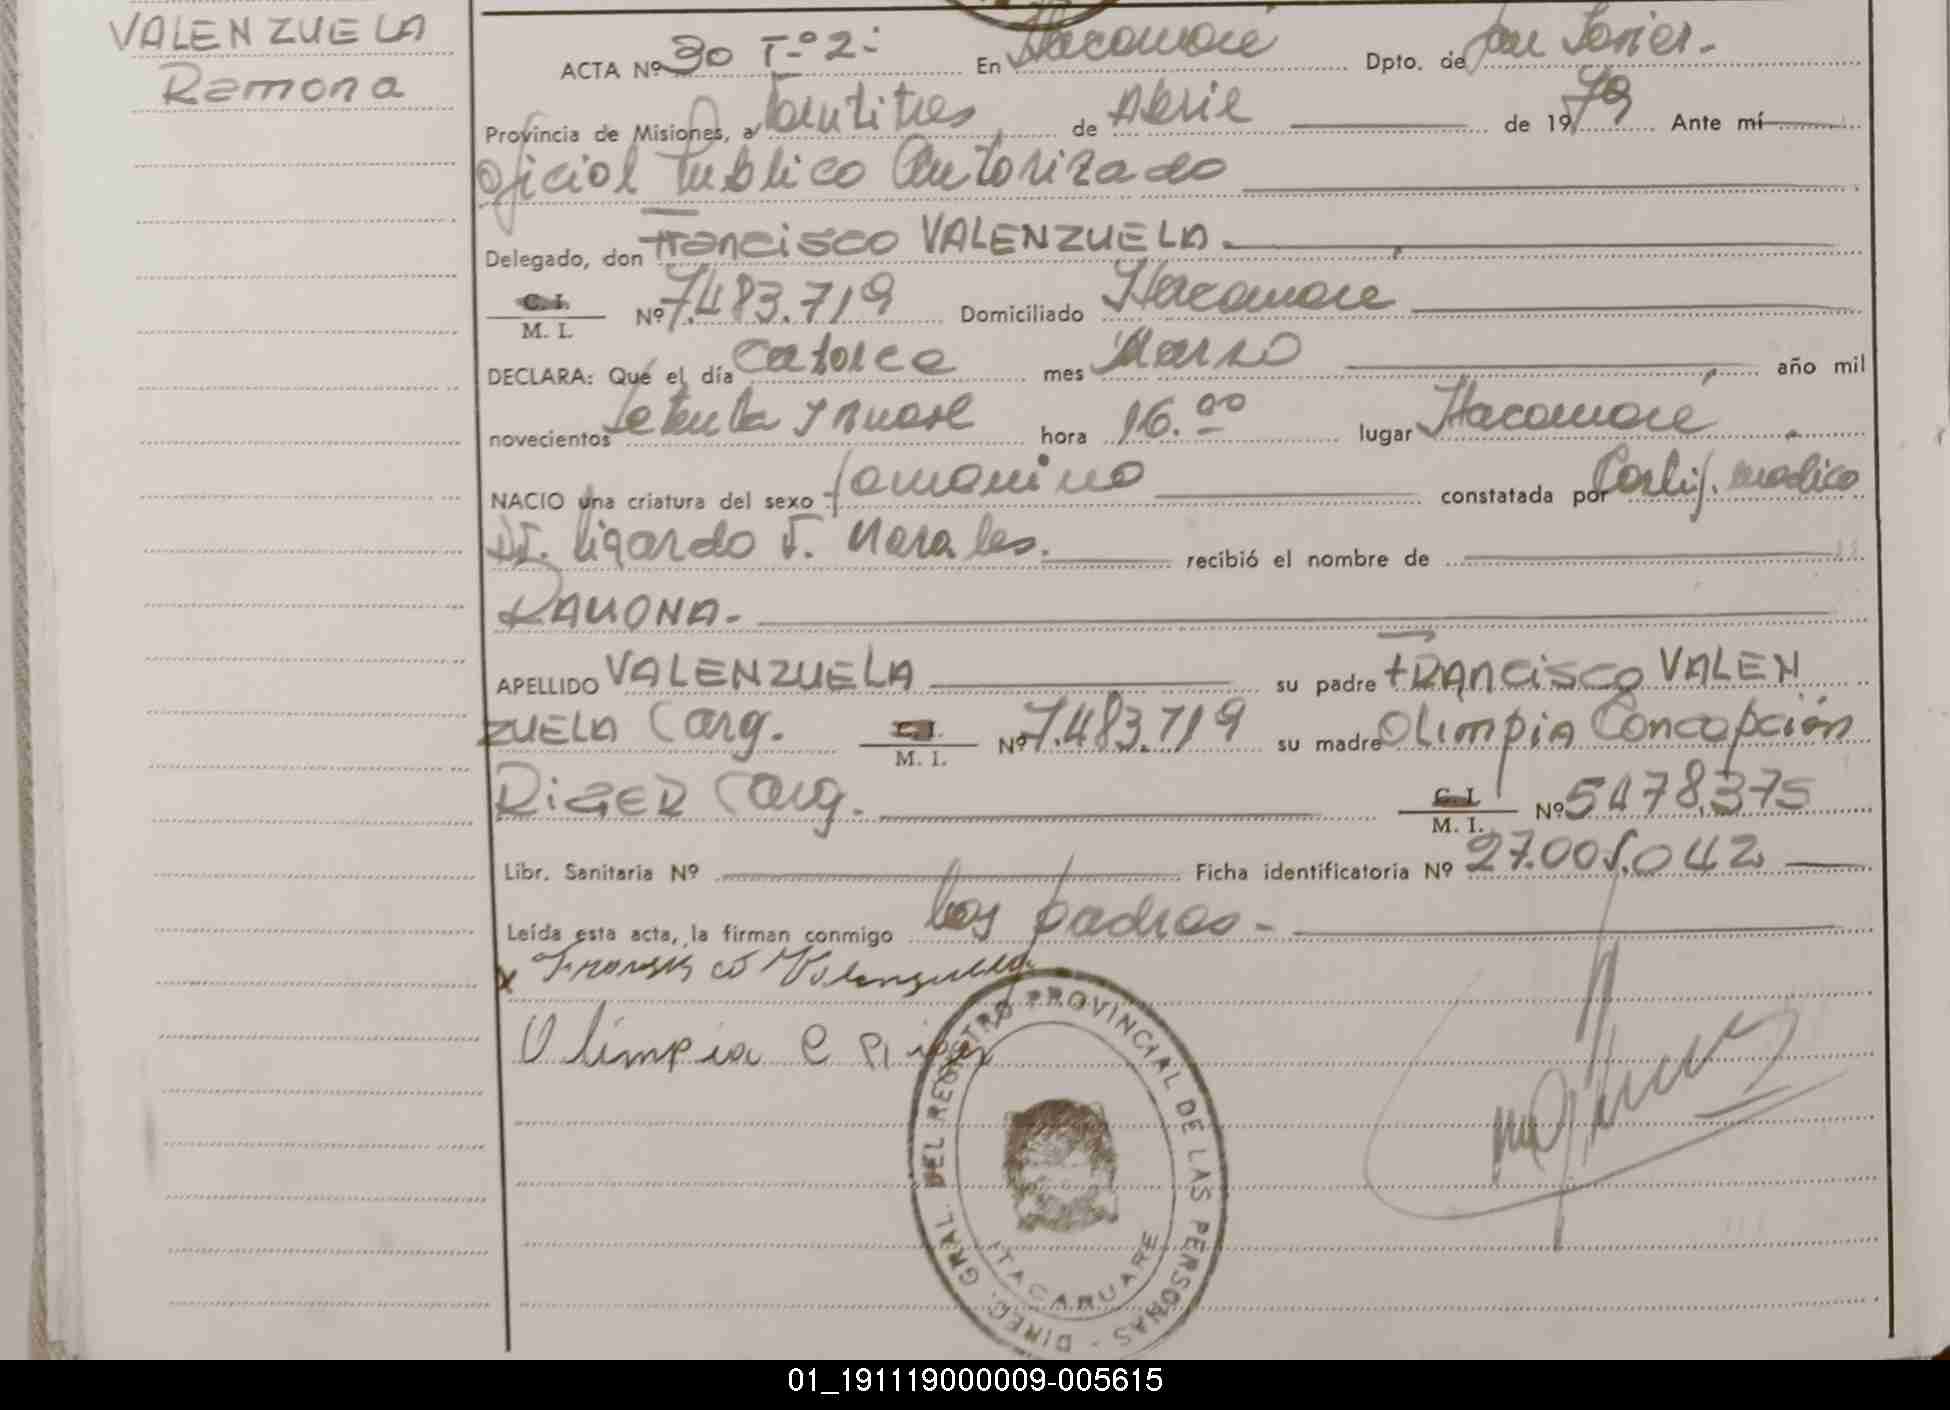 VALENZUELA
Ramona
ACTA Nº 90 Tº 2- En Itacaruaré Dpto. de San Javier.-
Provincia de Misiones, a Veintitres de Abril de 1979 Ante mí
Oficial Publico Autorizado
Delegado, don Francisco VALENZUELA.
C. I.
M. I. Nº 7.483.719 Domiciliado Itacaruare
DECLARA: Que el día Catorce mes Marzo año mil
novecientos Setenta y nueve hora 16.00 lugar Itacaruaré
NACIO una criatura del sexo femenino constatada por Certif. medico
Dr. Ligardo F. Morales. recibió el nombre de
RAMONA-
APELLIDO VALENZUELA su padre FRANCISCO VALEN
ZUELA (arg. C. I.
M. I. Nº 7.483.719 su madre OLIMPIA Concepción
RIGER (arg. C. I.
M. I. Nº 5478.375
Libr. Sanitaria Nº Ficha identificatoria Nº 27.005.042
Leída esta acta, la firman conmigo los padres-
x Fransisco Valenzuela
Olimpia C
DIREC. GRAL. DEL REGISTRO PROVINCIAL DE LAS PERSONAS -
ITACARUARE
01_191119000009-005615